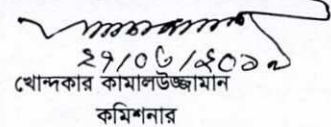 ২৭/০৬/২০১৯
খোন্দকার কামালউজ্জামান
কমিশনার